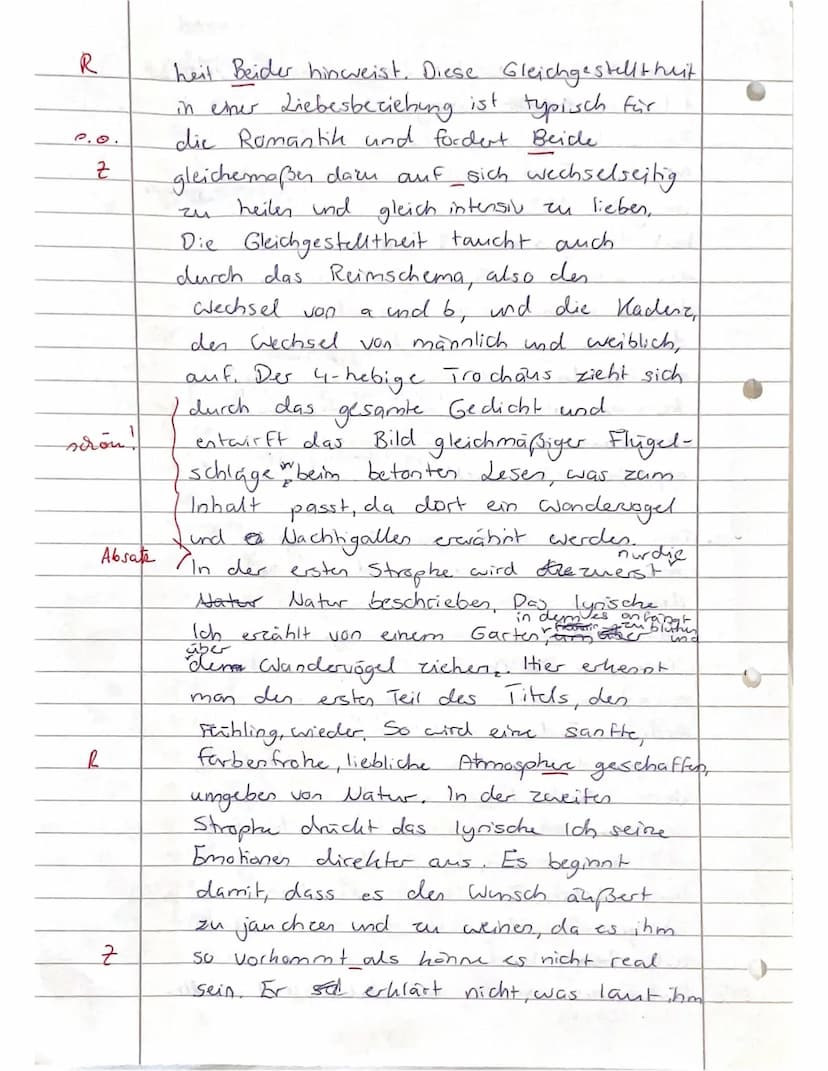 R heit Beider hinweist. Diese Gleichgestelltheit
in einer Liebesbeziehung ist typisch für
p.o. die Romantik und fordert Beide
Z gleichermaßen dazu auf_sich wechselseitig
zu heilen und gleich intensiv zu lieben.
Die Gleichgestelltheit taucht auch
durch das Reimschema, also den
Wechsel von a und b, und die Kadenz,
den Wechsel von männlich und weiblich,
auf. Der 4-hebige Trochäus zieht sich
durch das gesamte Gedicht und
schön! entwirft das Bild gleichmäßiger Flügel-
schläge beim betonten Lesen, was zum
Inhalt passt, da dort ein Wandervogel
und Nachtigallen erwähnt werden.
Absatz nur die
In der ersten Strophe wird zuerst
Natur Natur beschrieben. Das lyrische
in dem es anfängt
zu blühen
Ich erzählt von einem Garten, und
über
dem Wandervögel ziehen. Hier erkennt
man den ersten Teil des Titels, den
Frühling, wieder. So wird eine sanfte,
R farbenfrohe, liebliche Atmosphere geschaffen,
umgeben von Natur. In der zweiten
Strophe drückt das lyrische Ich seine
Emotionen direkter aus. Es beginnt
damit, dass es den Wunsch äußert
zu jauchzen und zu weinen, da es ihm
Z so vorkommt_als könne es nicht real
sein. Er erklärt nicht, was laut ihm